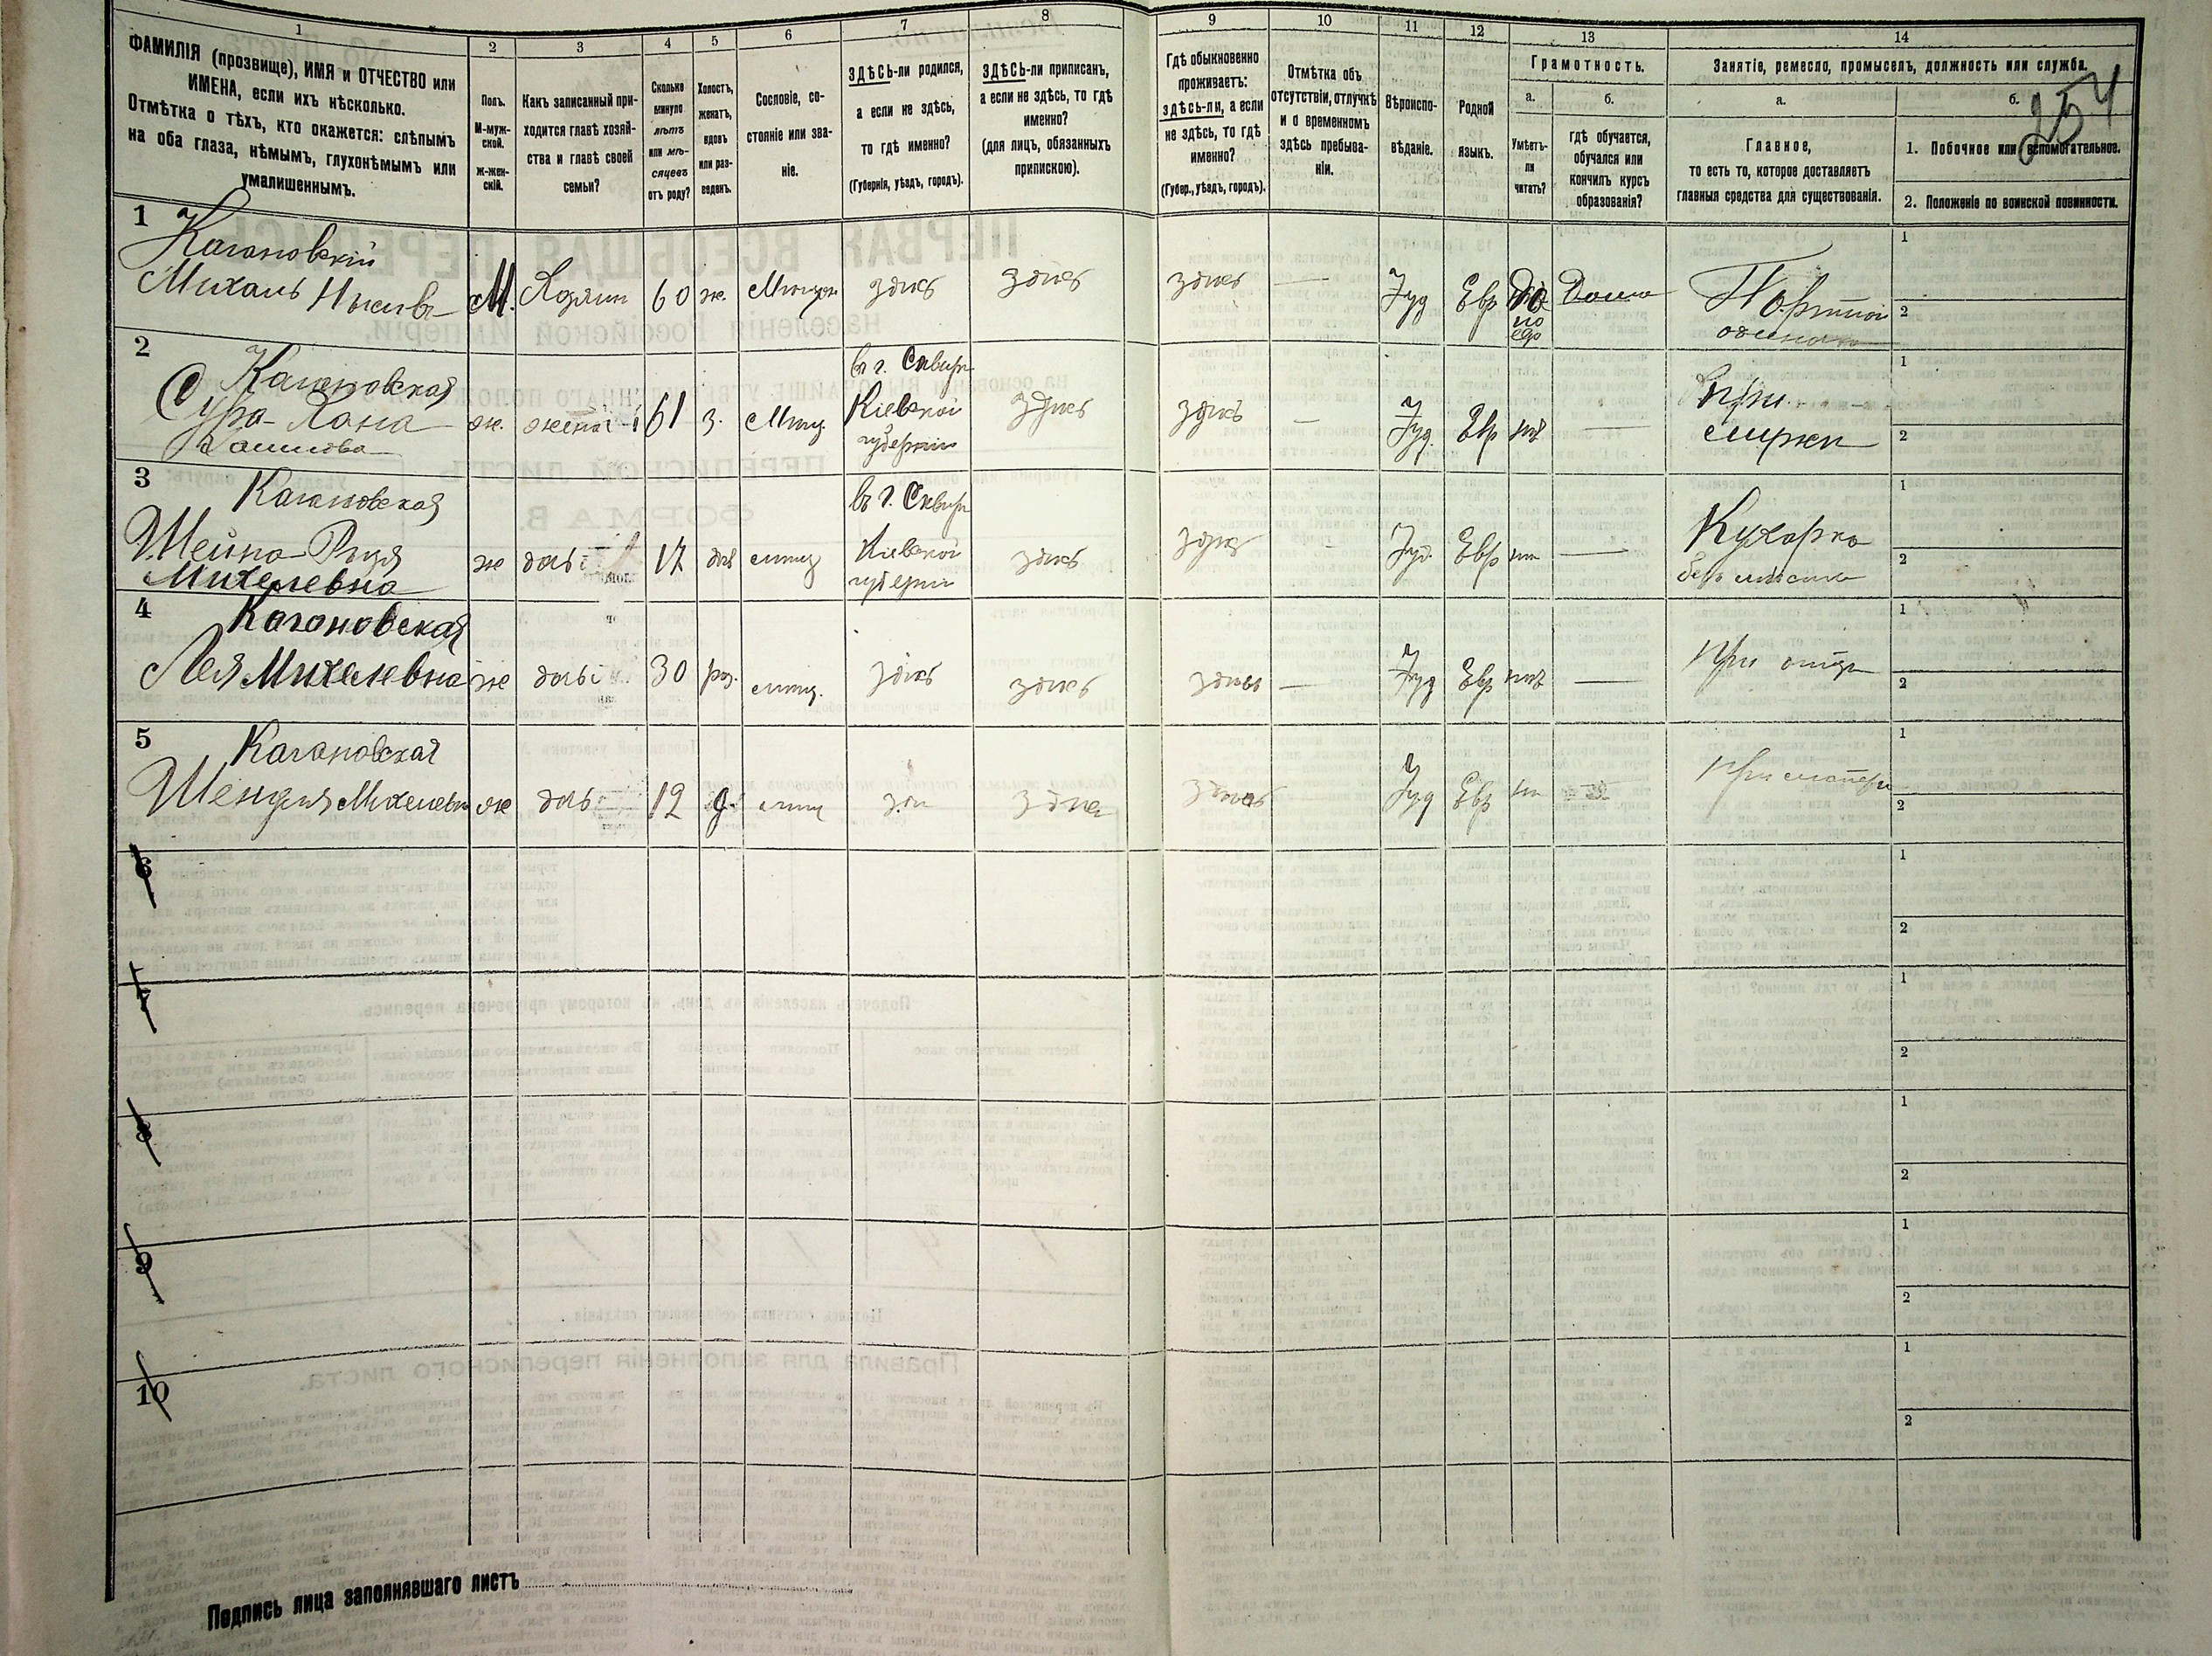 1
2
3
4
5
6
7
8
9
10
11
12
13
14
ФАМИЛІЯ (прозвище), ИМЯ и ОТЧЕСТВО или
ИМЕНА, если ихъ нѣсколько.
Отмѣтка о тѣхъ, кто окажется: слѣпымъ
на оба глаза, нѣмымъ, глухонѣмымъ или
умалишеннымъ.
Полъ.
М-муж-
ской.
ж-жен-
скій.
Какъ записанный при-
ходится главѣ хозяй-
ства и главѣ своей
семьи?
Сколько
минуло
лѣтъ
или мѣ-
сяцевъ
отъ роду?
Холостъ,
женатъ,
вдовъ
или раз-
веденъ.
Сословіе, со-
стояніе или зва-
ніе.
ЗДѢСЬ-ли родился,
а если не здѣсь,
то гдѣ именно?
(Губернія, уѣздъ, городъ).
ЗДѢСЬ-ли приписанъ,
а если не здѣсь, то гдѣ
именно?
(для лицъ, обязанныхъ
припискою).
Гдѣ обыкновенно
проживаетъ:
здѣсь-ли, а если
не здѣсь, то гдѣ
именно?
(Губер., уѣздъ, городъ).
Отмѣтка объ
отсутствіи, отлучкѣ
и о временномъ
здѣсь пребыва-
ніи.
Вѣроиспо-
вѣданіе.
Родной
языкъ.
Грамотность.
а.
Умѣетъ-
ли
читать?
б.
гдѣ обучается,
обучался или
кончилъ курсъ
образованія?
Занятіе, ремесло, промыселъ, должность или служба.
а.
Главное,
то есть то, которое доставляетъ
главныя средства для существованія.
б.
254
1. Побочное или вспомогательное.
2. Положеніе по воинской повинности.
1
Кагановскій
Михаль
М. Хозяинъ 60 ж. здѣсь здѣсь здѣсь — Іуд Евр
по
евр
Дома
Портной
1
2
2
Кагановская
Сура-Хана
ж. жена 61 з. Мѣщ.
въ г. Сквирѣ
Кіевской
губерніи
здѣсь здѣсь — Іуд. Евр нѣтъ —
при
мужѣ
1
2
3
Кагановская
Шейна-Рися
Михелевна
ж дочь 17 дѣв мѣщ
въ г. Сквирѣ
Кіевской
губерніи
здѣсь здѣсь - Іуд. Евр нѣтъ —
Кухарка
безъ мѣста
1
2
4
Кагановская
Лея Михелевна
ж дочь 30 раз. мѣщ. здѣсь здѣсь здѣсь — Іуд Евр нѣтъ —
при отцѣ
1
2
5
Кагановская
Шендля Михелевна
ж дочь 12 д. мѣщ здѣсь здѣсь Іуд Евр
при матери
1
2
6
1
2
7
1
2
8
1
2
9
1
2
10
1
2
Подпись лица заполнявшаго листъ